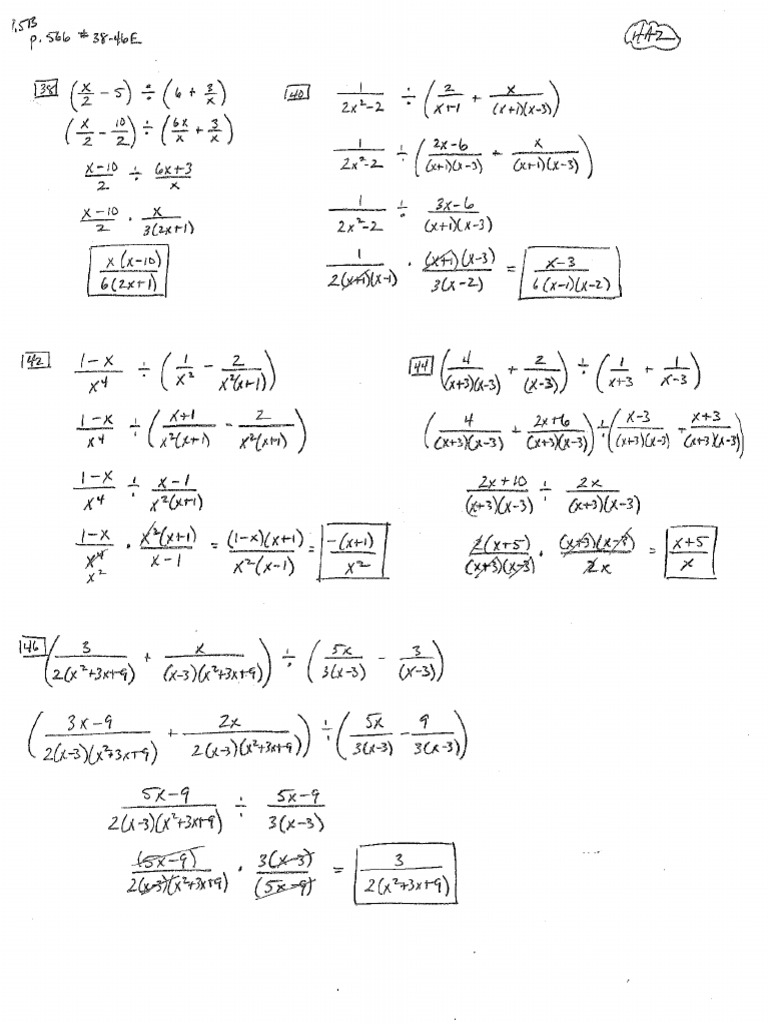 1.5B
p. 566 # 38-46E
HA2
38 (x/2 - 5) ÷ (6 + 3/x)
(x/2 - 10/2) ÷ (6x/x + 3/x)
x-10/2 ÷ 6x+3/x
x-10/2 · x/3(2x+1)
x(x-10)/6(2x+1)
40 1/2x²-2 ÷ (2/x+1 + x/(x+1)(x-3))
1/2x²-2 ÷ (2x-6/(x+1)(x-3) + x/(x+1)(x-3))
1/2x²-2 ÷ 3x-6/(x+1)(x-3)
1/2(x+1)(x-1) · (x+1)(x-3)/3(x-2) = x-3/6(x-1)(x-2)
42 1-x/x⁴ ÷ (1/x² - 2/x²(x+1))
1-x/x⁴ ÷ (x+1/x²(x+1) - 2/x²(x+1))
1-x/x⁴ ÷ x-1/x²(x+1)
1-x/x⁴ x² · x²(x+1)/x-1 = (1-x)(x+1)/x²(x-1) = -(x+1)/x²
44 (4/(x+3)(x-3) + 2/(x-3)) ÷ (1/x+3 + 1/x-3)
(4/(x+3)(x-3) + 2x+6/(x+3)(x-3)) ÷ (x-3/(x+3)(x-3) + x+3/(x+3)(x-3))
2x+10/(x+3)(x-3) ÷ 2x/(x+3)(x-3)
2(x+5)/(x+3)(x-3) · (x+3)(x-3)/2x = x+5/x
46 (3/2(x²+3x+9) + x/(x-3)(x²+3x+9)) ÷ (5x/3(x-3) - 3/(x-3))
(3x-9/2(x-3)(x²+3x+9) + 2x/2(x-3)(x²+3x+9)) ÷ (5x/3(x-3) - 9/3(x-3))
5x-9/2(x-3)(x²+3x+9) ÷ 5x-9/3(x-3)
(5x-9)/2(x-3)(x²+3x+9) · 3(x-3)/(5x-9) = 3/2(x²+3x+9)